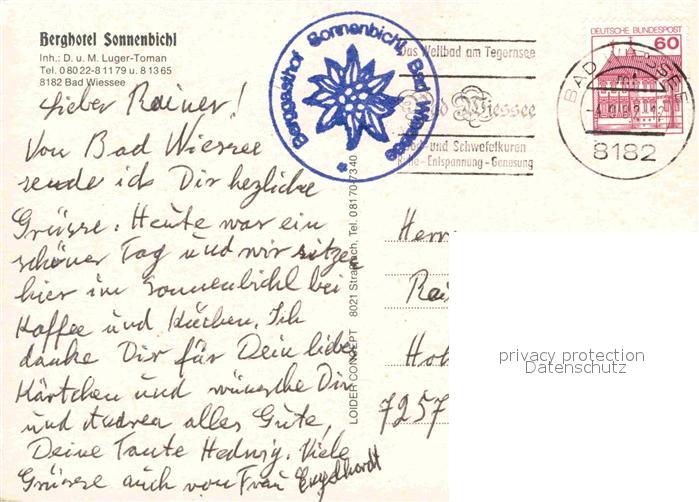 Berghotel Sonnenbichl
Inh.: D. u. M. Luger-Toman
Tel. 0 80 22-8 11 79 u. 8 13 65
8182 Bad Wiessee
Lieber Rainer!
Von Bad Wiessee
sende ich Dir herzliche
Grüsse. Heute war ein
schöner Tag und wir sitzen
hier im Sonnenbichl bei
Kaffee und Kuchen. Ich
danke Dir für Dein liebes
Kärtchen und wünsche Dir
und Andrea alles Gute,
Deine Tante Hedwig. Viele
Grüsse auch von Frau Engelhardt
Berggasthof Sonnenbichl, Bad Wiessee
Das Heilbad am Tegernsee
Bad Wiessee
und Schwefelkuren
Ruhe-Entspannung-Genesung
DEUTSCHE BUNDESPOST
60
BAD WIESSEE
8182
LOIDER CONCEPT 8021 Strasslach, Tel. 08170-7340
Herrn
Rai
Hoh
7257
privacy protection
Datenschutz